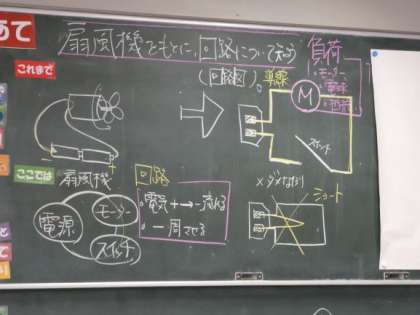 あて
扇風機をもとに、回路について知ろう
これまで
(回路図)。
導線
負荷
・モーター
・電球
・抵抗
M
スイッチ
ここでは
扇風機
電源
モーター
スイッチ
回路
・電気+→-流れる
・一周させる
×ダメなれい
ショート